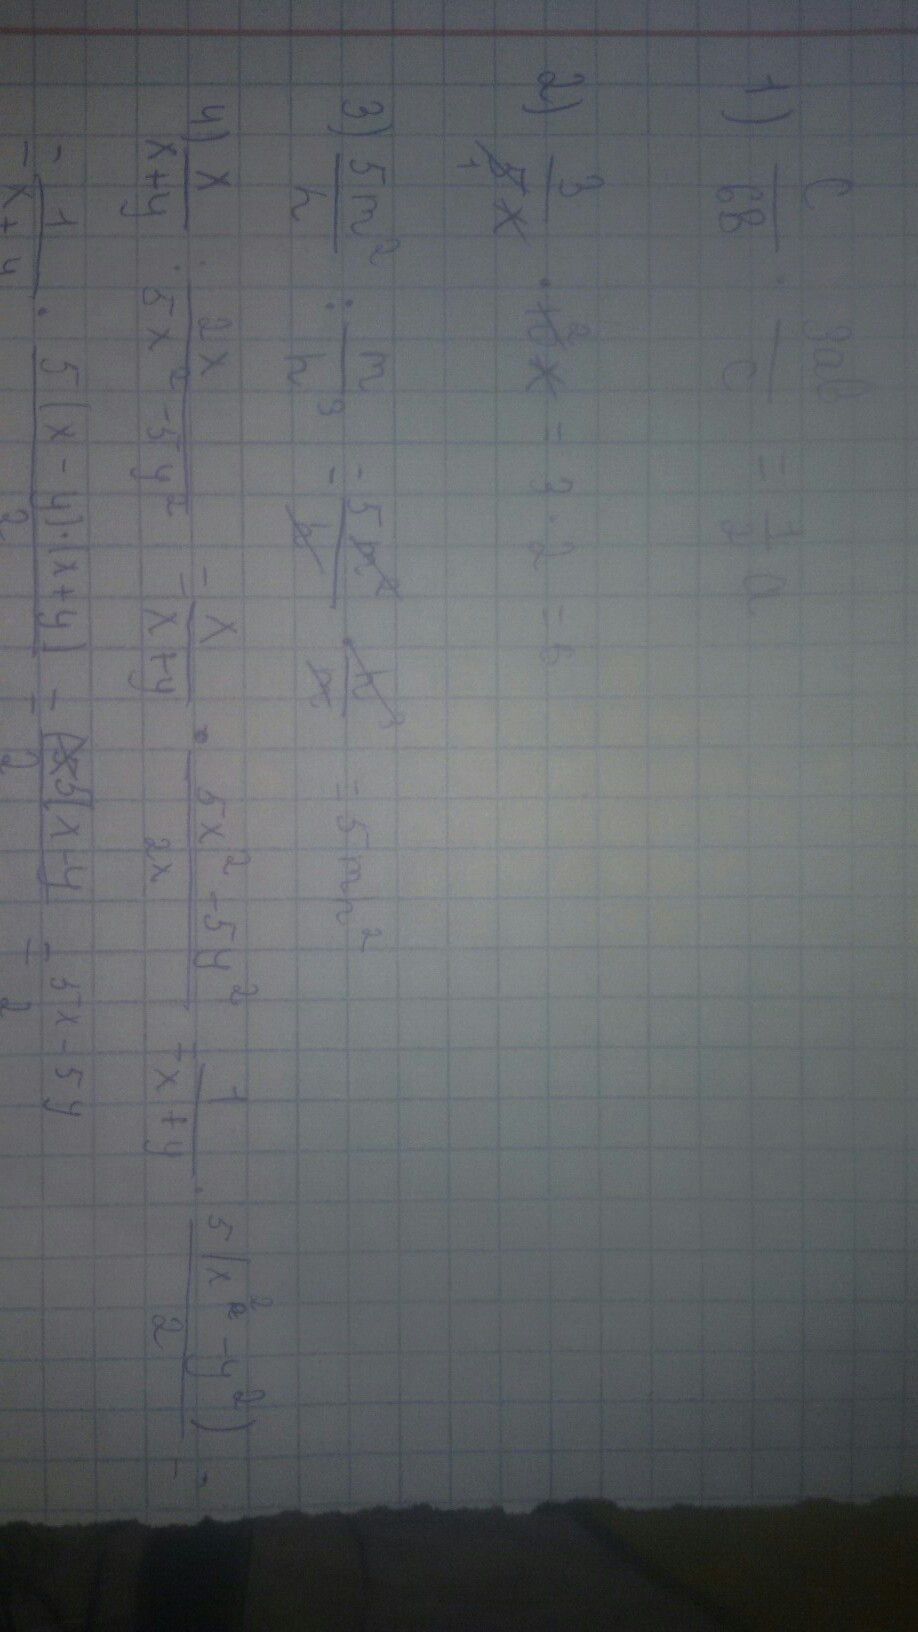 1) c/6b · 3ab/c = 1/2 a
2) 3/5x · 10x = 3 · 2 = 6
3) 5m²/n : m/n³ = 5m²/n · n³/m = 5mn²
4) x/x+y : 2x/5x²-5y² = x/x+y · 5x²-5y²/2x = 1/x+y · 5(x²-y²)/2 =
= 1/x+y · 5(x-y)·(x+y)/2 = 5(x-y)/2 = 5x-5y/2